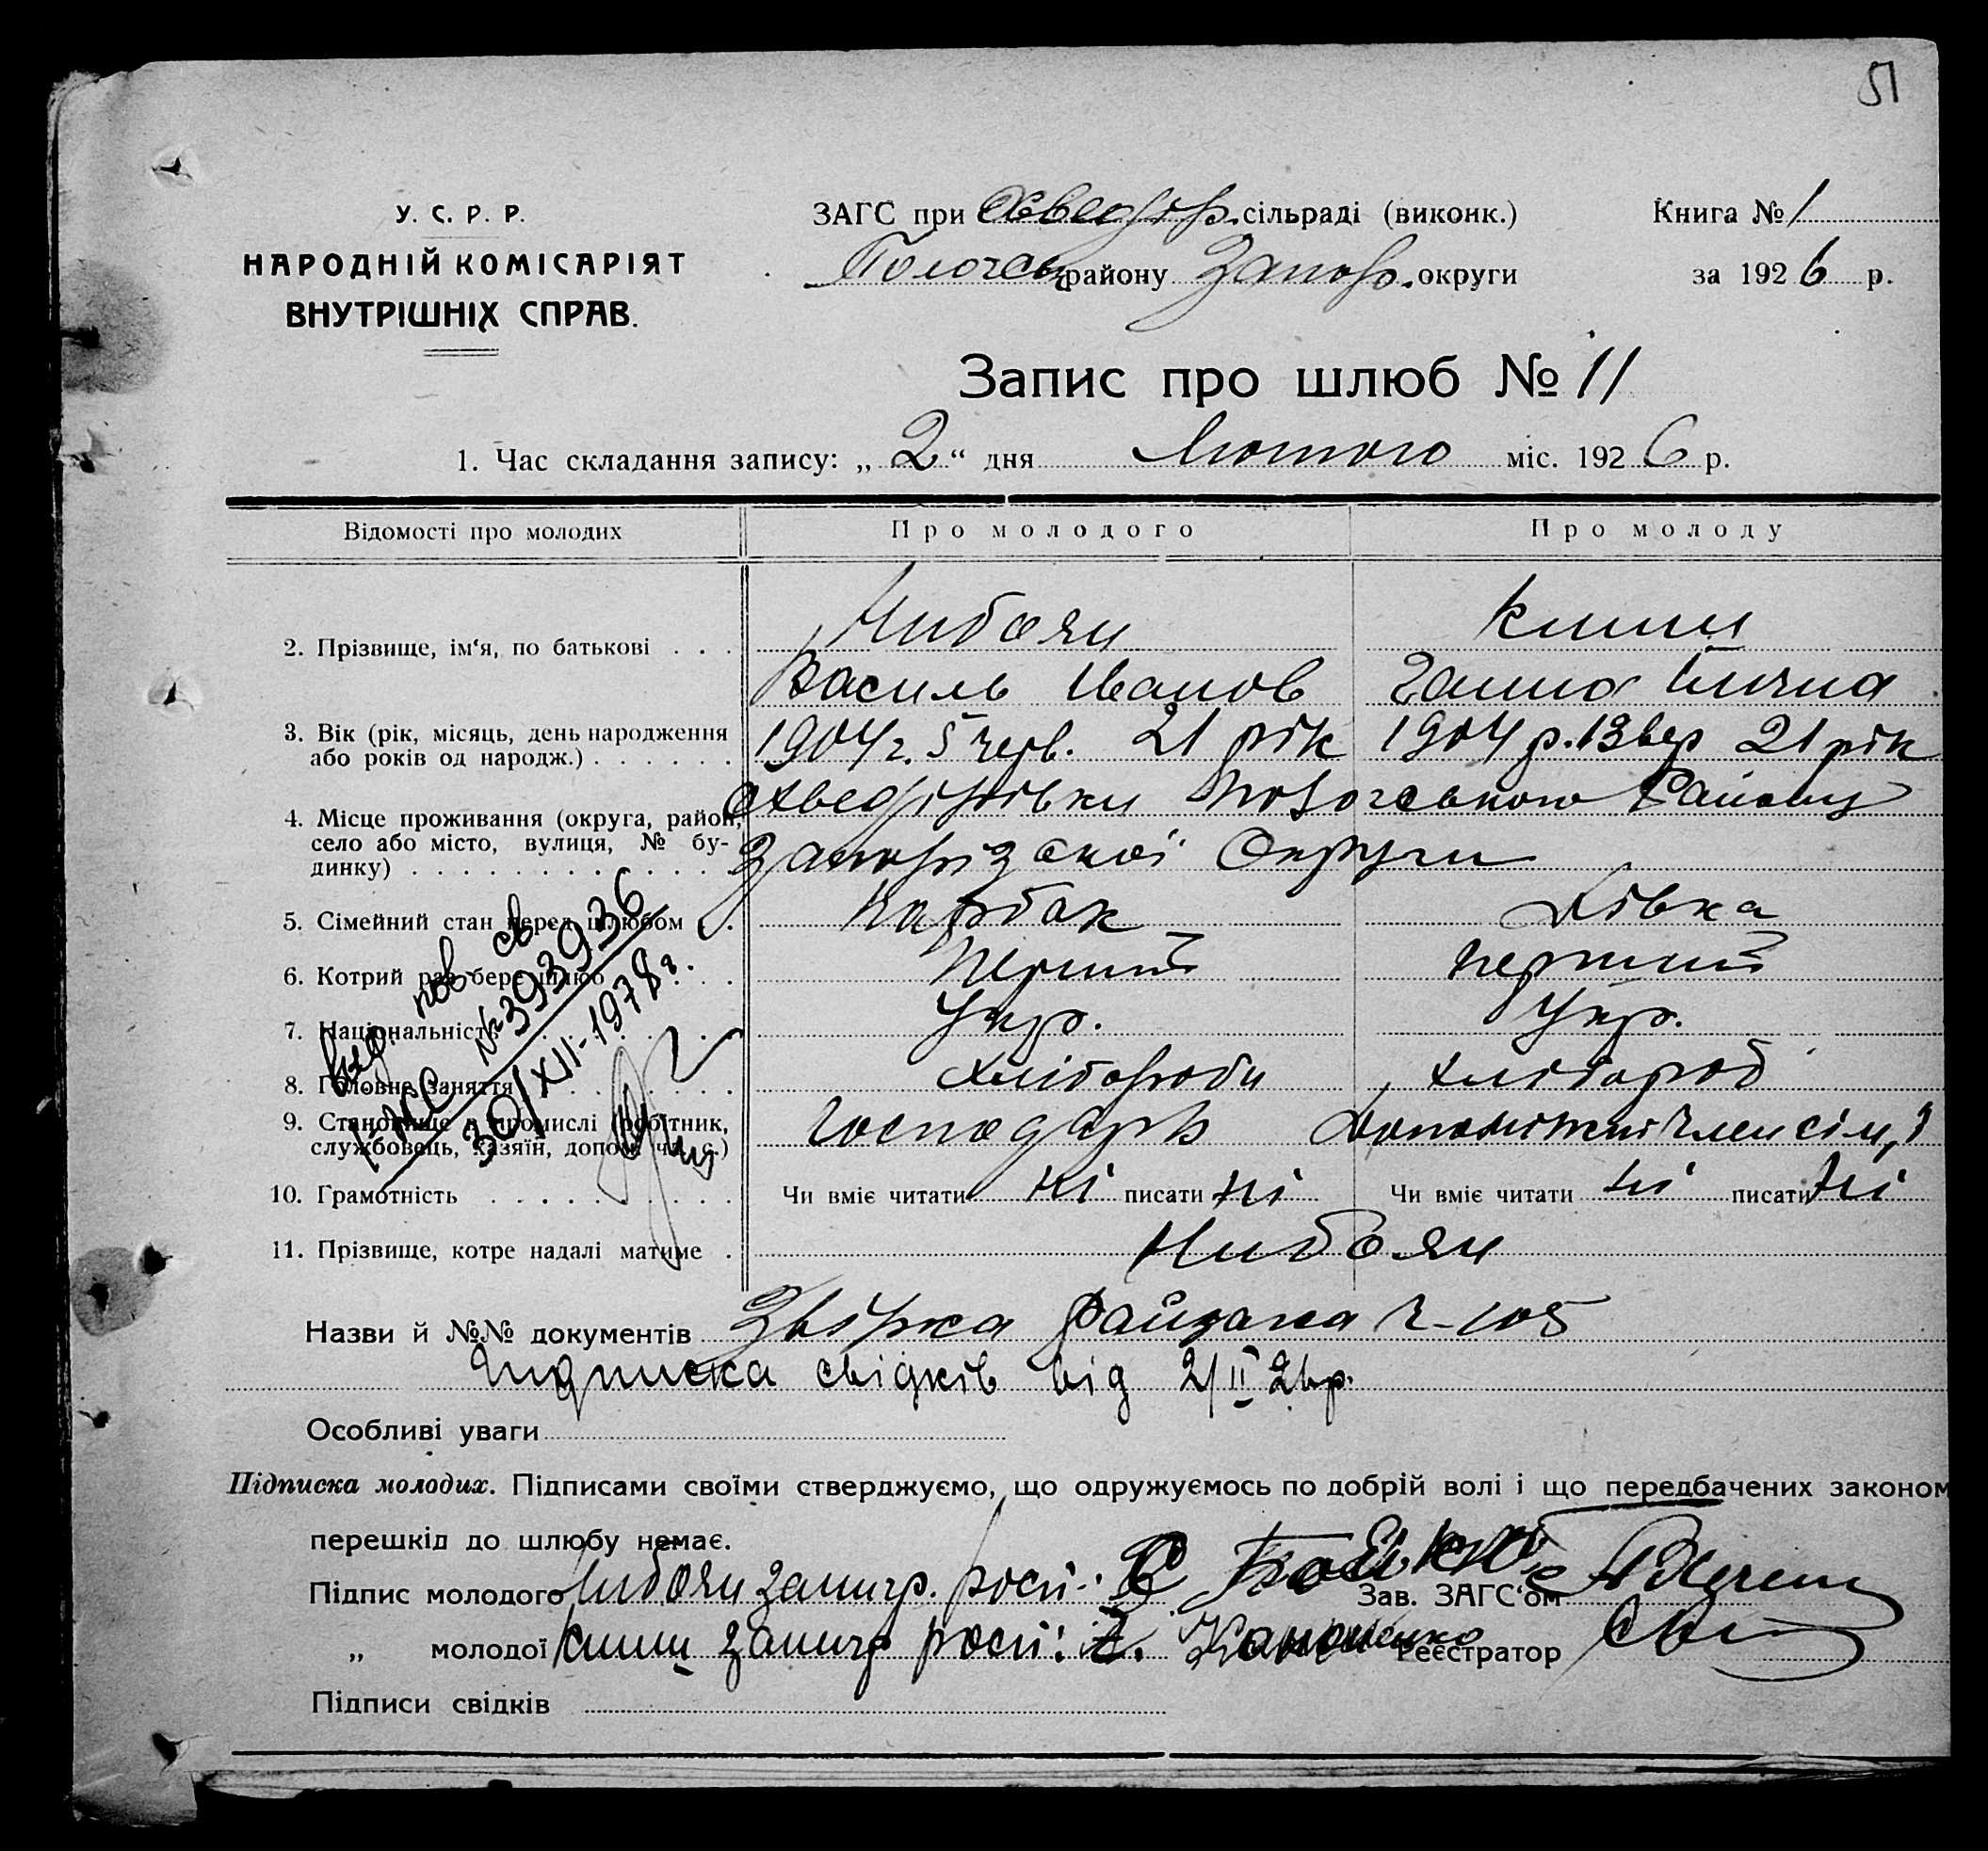 51
У. С. Р. Р.
НАРОДНІЙ КОМІСАРІЯТ
ВНУТРІШНІХ СПРАВ.
ЗАГС при Охведор. сільраді (виконк.)
району Запор. округи
Книга № 1
за 1926 р.
Запис про шлюб № 11
1. Час складання запису: „ 2 “ дня Лютого міс. 1926 р.
Відомості про молодих Про молодого Про молоду
2. Прізвище, ім‘я, по батькові Чибоян Книш
Василь Іванов Ганна
3. Вік (рік, місяць, день народження
або років од народж.) 1904 г. 5 черв. 21 рік 1904 р. 13 вер 21 рік
4. Місце проживання (округа, район,
село або місто, вулиця, № бу-
динку) Охведорівки Пологського Району
Запорізскої Округи
5. Сімейний стан перед шлюбом Парубак Дівка
6. Котрий раз бере шлюб Перший перший
7. Національність Укр. Укр.
8. Головне заняття хлібороби хлібороб
9. Становище в промислі (робітник,
службовець, хазяїн, допом. чл. с.) Господарь Допоміжний член сім,ї
10. Грамотність Чи вміє читати ні писати ні Чи вміє читати ні писати ні
11. Прізвище, котре надалі матиме Чибоян
вид. пов. св.
№ 393936
30/XII-1978 г.
Назви й №№ документів Звірка
Підписка свідків від 2/II 26 р.
Особливі уваги
Підписка молодих. Підписами своїми стверджуємо, що одружуємось по добрій волі і що передбачених законом
перешкід до шлюбу немає.
Підпис молодого Чибоян Зав. ЗАГС‘ом
„ молодої Книш Кононенко Реєстратор
Підписи свідків